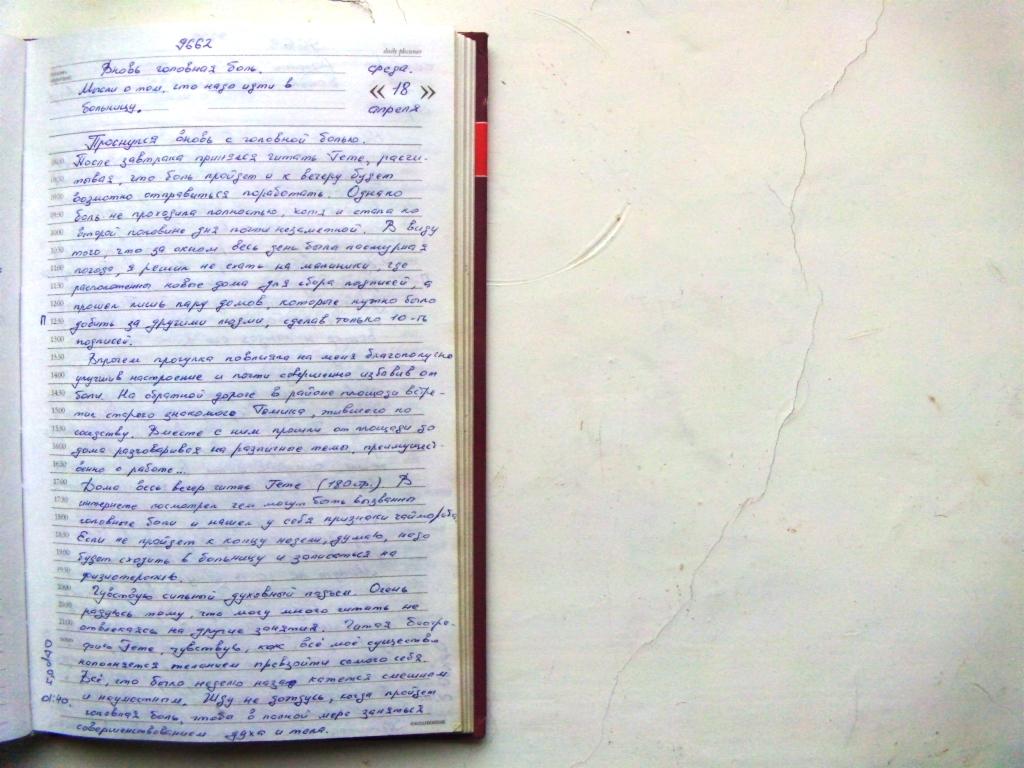 9662
daily planner
Вновь головная боль.
среда.
Мысли о том, что надо идти в
« 18 »
больницу.
апреля
Проснулся вновь с головной болью.
После завтрака принялся читать Гете, расчи-
тывая, что боль пройдет и к вечеру будет
возможно отправиться поработать. Однако
боль не проходила полностью, хотя и стала ко
второй половине дня почти незаметной. В виду
того, что за окном весь день была пасмурная
погода, я решил не ехать на малиники, где
расположены новые дома для сбора подписей, а
прошел лишь пару домов, которые нужно было
П 12:30 добить за другими людьми, сделав только 10-ть
13:00 подписей.
13:30 Впрочем прогулка повлияла на меня благополучно
14:00 улучшив настроение и почти совершенно избавив от
14:30 боли. На обратной дороге в районе площади встре-
15:00 тил старого знакомого Томика, жившего по
15:30 соседству. Вместе с ним прошли от площади до
16:00 дома разговаривая на различные темы, преимущест-
16:30 венно о работе...
17:00 Дома весь вечер читал Гете (180 стр.) В
17:30 интернете посмотрел чем могут быть вызванны
18:00 головные боли и нашел у себя признаки гайморита
18:30 Если не пройдет к концу недели, думаю, надо
19:00 будет сходить в больницу и записаться на
физиотерапию.
20:00 Чувствую сильный духовный подъем. Очень
20:30 радуюсь тому, что могу много читать не
21:00 отвлекаясь на другие занятия. Читая биогра-
фию Гете, чувствую, как всё моё существо
наполняется желанием превзойти самого себя.
Всё, что было неделю назад кажется смешным
01:40. и неуместным. Жду не дождусь, когда пройдет
головная боль, чтобы в полной мере заняться
совершенствованием духа и тела.